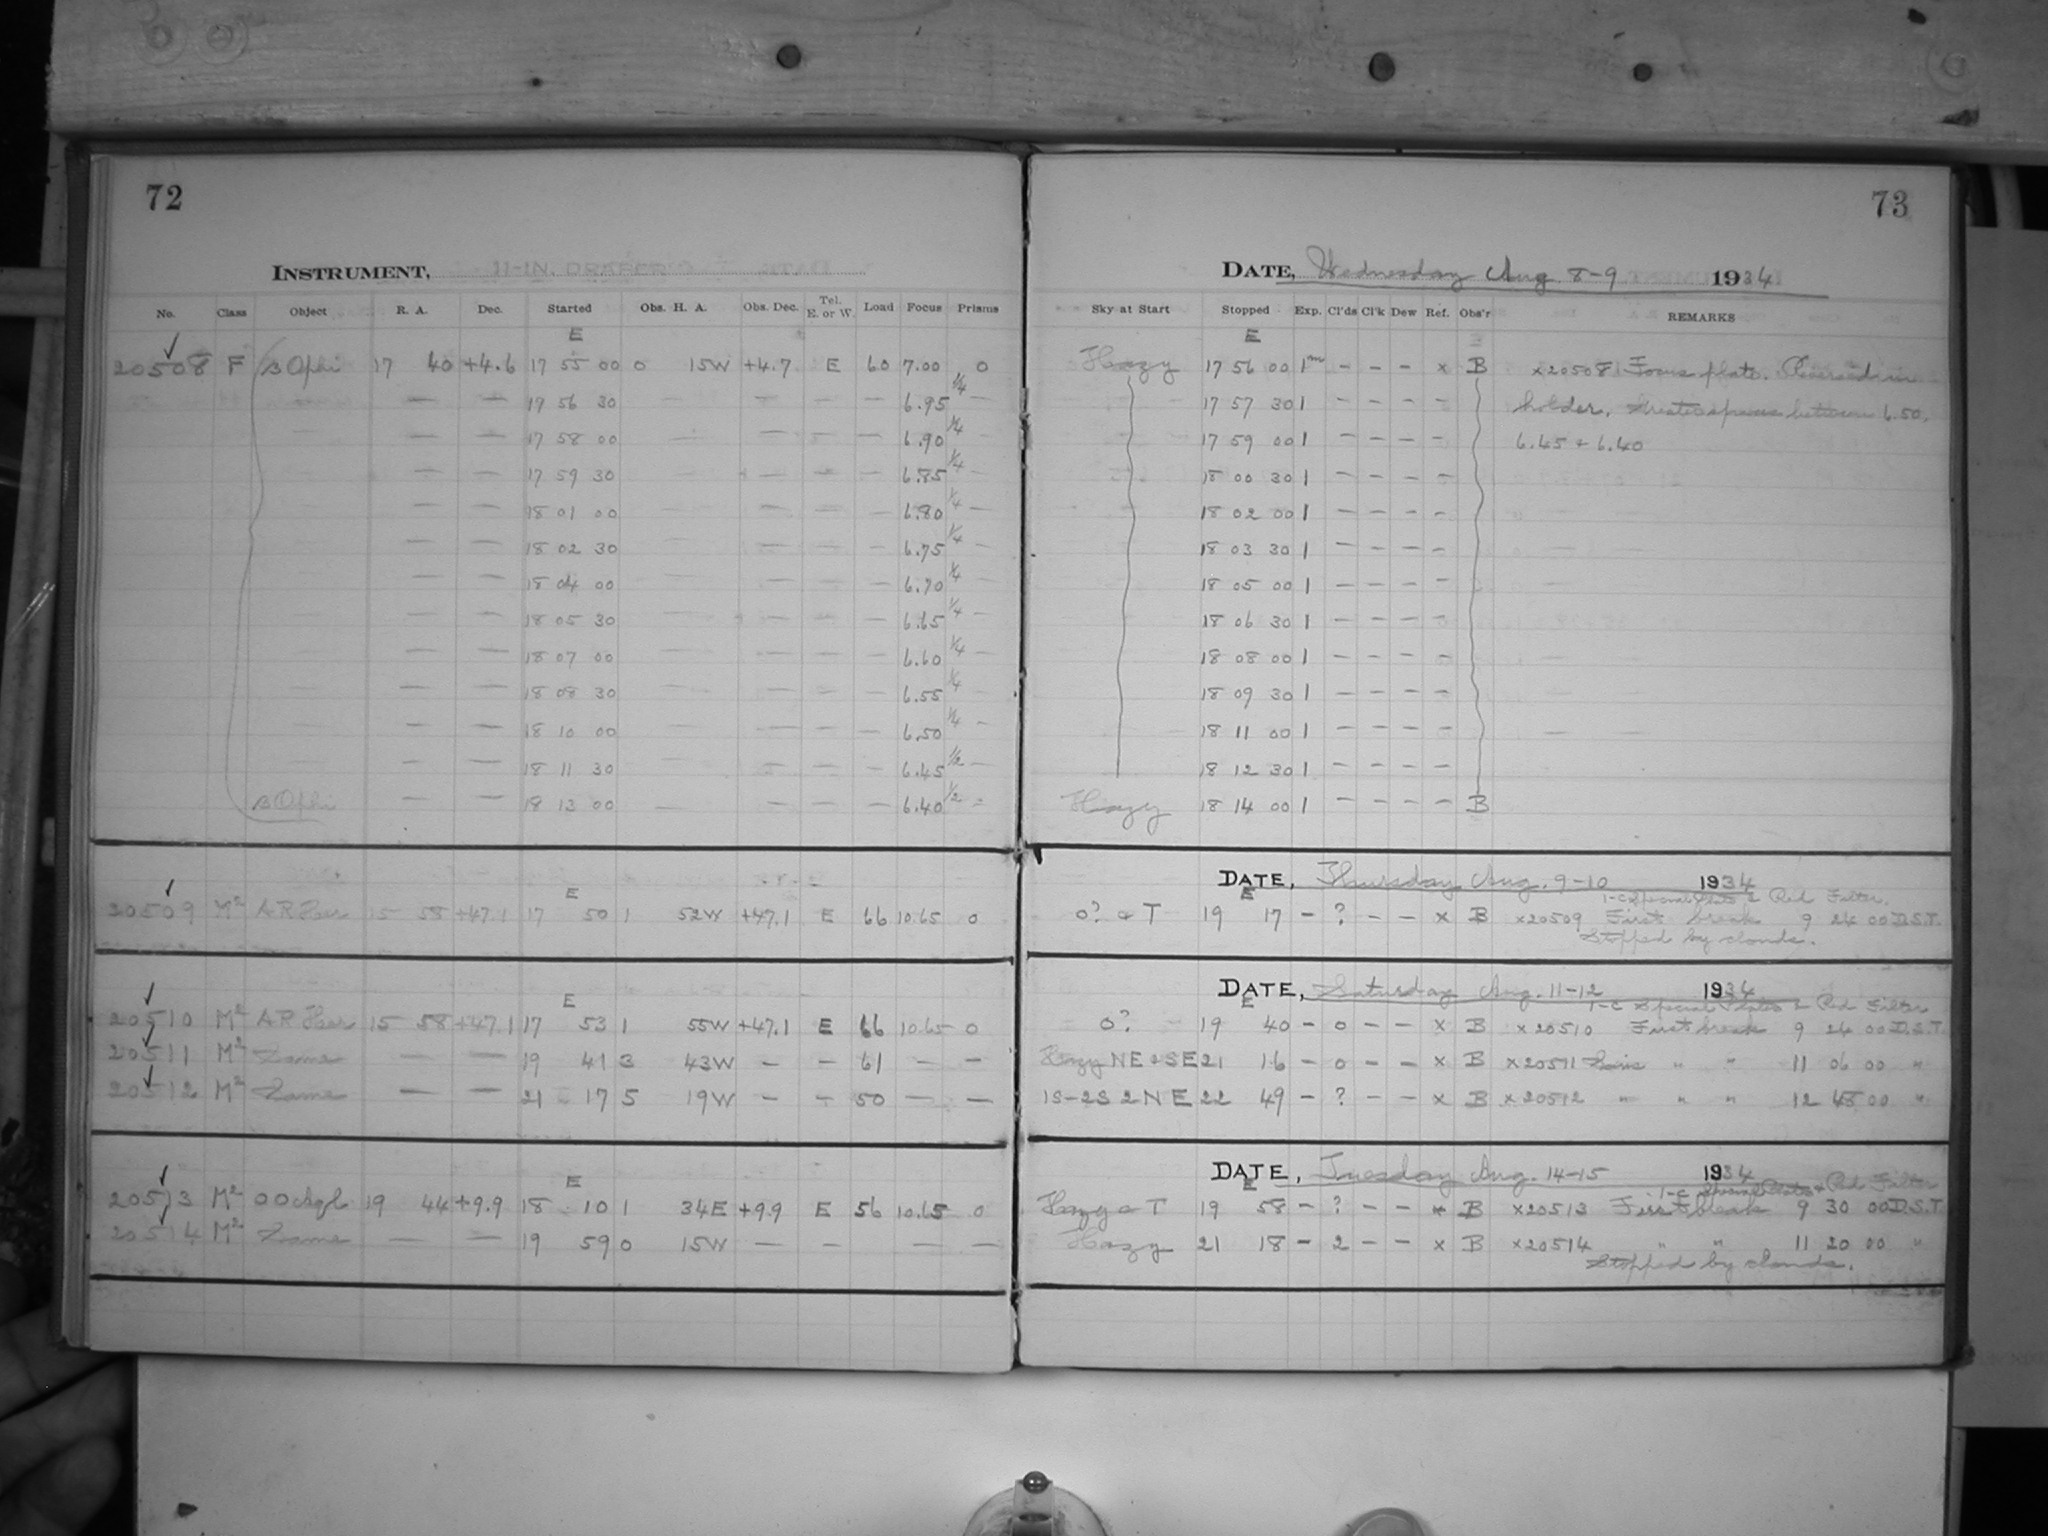 72
INSTRUMENT,
No. Class Object R. A. Dec. Started Obs. H. A. Obs. Dec. Tel. E. or W. Load Focus Prisms
E
20508 F B Ophi 17 40 +4.6 17 55 00 0 15W +4.7 E 60 7.00 0
— — 19 56 30 — — — — 6.95 1/4 —
— — 17 58 00 — — — — 6.90 1/4 —
— — 17 59 30 — — — 6.85 1/4 —
— — 18 01 00 — — — 6.80 1/4 —
— — 18 02 30 — — — 6.75 1/4 —
— — 18 04 00 — — — 6.70 1/4 —
— — 18 05 30 — — — 6.65 1/4 —
— — 18 07 00 — — — 6.60 1/4 —
— — 18 08 30 — — — 6.55 1/4
— — 18 10 00 — — — 6.50 1/4 —
— — 18 11 30 — — — 6.45 1/2 —
B Ophi — — 18 13 00 — — — — 6.40 1/2 =
E
20509 M2 A R Her 15 58 +47.1 17 50 1 52W +47.1 E 66 10.65 0
E
20510 M2 A R Her 15 58 +47.1 17 53 1 55W +47.1 E 66 10.65 0
20511 M2 Same — — 19 41 3 43W — — 61 — —
20512 M2 Same — — 21 17 5 19W — — 50 — —
E
20513 M2 OO Aql 19 44 +9.9 18 10 1 34E +9.9 E 56 10.65 0
20514 M2 Same — — 19 59 0 15W — — — —
73
DATE, Wednesday Aug 8-9 1934
Sky at Start Stopped Exp. Cl'ds Cl'k Dew Ref. Obs'r REMARKS
E
Hazy 17 56 00 1m — — — x B x20508 Focus plate. Reversed in
17 57 30 1 — — — — holder. Greatest spaces between 6.50,
17 59 00 1 — — — — 6.45 & 6.40
18 00 30 1 — — — —
18 02 00 1 — — — —
18 03 30 1 — — — —
18 05 00 1 — — — —
18 06 30 1 — — — —
18 08 00 1 — — — —
18 09 30 1 — — — —
18 11 00 1 — — — —
18 12 30 1 — — — —
Hazy 18 14 00 1 — — — — B
DATE, Thursday Aug. 9-10 1934
E 1-C Special Plate & Red Filter.
0? & T 19 17 — ? — — x B x20509 First break 9 24 00 D.S.T.
Stopped by clouds.
DATE, Saturday Aug. 11-12 1934
E 1-C Special Plates & Red Filter
0? 19 40 — 0 — — x B x20510 First break 9 24 00 D.S.T.
Hazy NE & SE 21 16 — 0 — — x B x20511 " " 11 06 00 "
1S-2S 2NE 22 49 — ? — — x B x20512 " " " 12 48 00 "
DATE, Tuesday Aug. 14-15 1934
E 1-C Special Plates & Red Filter
Hazy & T 19 58 — ? — — x B x20513 First break 9 30 00 D.S.T.
Hazy 21 18 — 2 — — x B x20514 " " 11 20 00 "
Stopped by clouds.